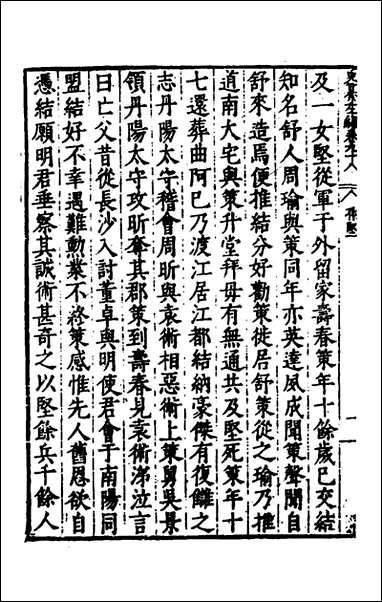 及一女堅從軍于外留家壽春策年十餘歲巳交結
知名舒人周瑜與策同年亦英達夙成聞策聲聞自
舒來造焉便推結分好勸策徙居舒策從之瑜乃推
道南大宅與策升堂拜母有無通共及堅死策年十
七還葬曲阿巳乃渡江居江都結納豪傑有復讎之
志丹陽太守稽會周昕與袁術相惡術上策舅吳景
領丹陽太守攻昕奪其郡策到壽春見袁術涕泣言
曰亡父昔從長沙入討董卓與明使君會于南陽同
盟結好不幸遇難勳業不終策感惟先人舊恩欲自
憑結願明君垂察其誠術甚奇之以堅餘兵千餘人